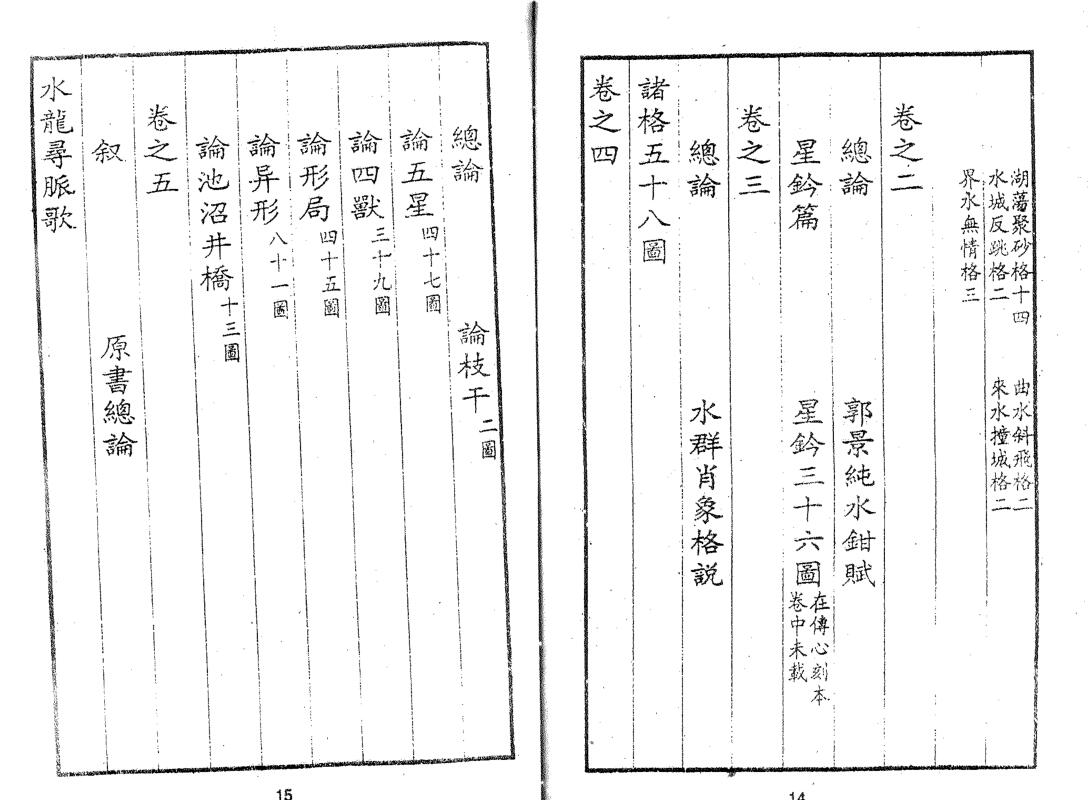 湖蕩聚砂格十四
水城反跳格二
界水無情格三
曲水斜飛格二
來水撞城格二
卷之二
總論
郭景純水鉗賦
星鈐篇
星鈐三十六圖
在傳心刻本
卷中未載
卷之三
總論
水群肖象格説
諸格五十八圖
卷之四
14
總論
論枝干二圖
論五星四十七圖
論四獸三十九圖
論形局四十五圖
論异形八十一圖
論池沼井橋十三圖
卷之五
叙
原書總論
水龍尋脈歌
15